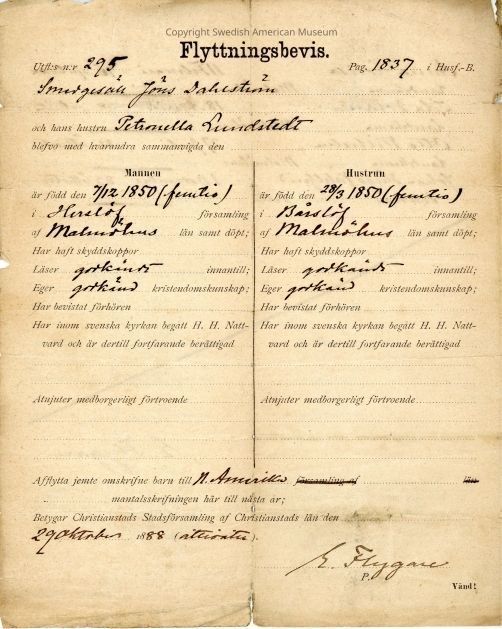 Copyright Swedish American Museum
Flyttningsbevis.
Utfl:s n:r 295
Pag. 1837 i Husf.-B.
Smedgesäll Jöns Dahlström
och hans hustru Petronella Lundstedt
blefvo med hvarandra sammanvigda den
Mannen
är född den 7/12 1850 (femtio)
i Herslöf församling
af Malmöhus län samt döpt;
Har haft skyddskoppor
Läser godkändt innantill;
Eger godkänd kristendomskunskap;
Har bevistat förhören
Har inom svenska kyrkan begått H. H. Natt-
vard och är dertill fortfarande berättigad
Åtnjuter medborgerligt förtroende
Hustrun
är född den 28/3 1850 (femtio)
i Bårslöf församling
af Malmöhus län samt döpt;
Har haft skyddskoppor
Läser godkändt innantill;
Eger godkänd kristendomskunskap;
Har bevistat förhören
Har inom svenska kyrkan begått H. H. Natt-
vard och är dertill fortfarande berättigad
Åtnjuter medborgerligt förtroende
Afflytta jemte omskrifne barn till N. Amerika församling af län
mantalsskrifningen här till nästa år;
Betygar Christianstads Stadsförsamling af Christianstads län den
29 Oktober 1888 (åttioåtta).
E. Flygare
P.
Vänd!